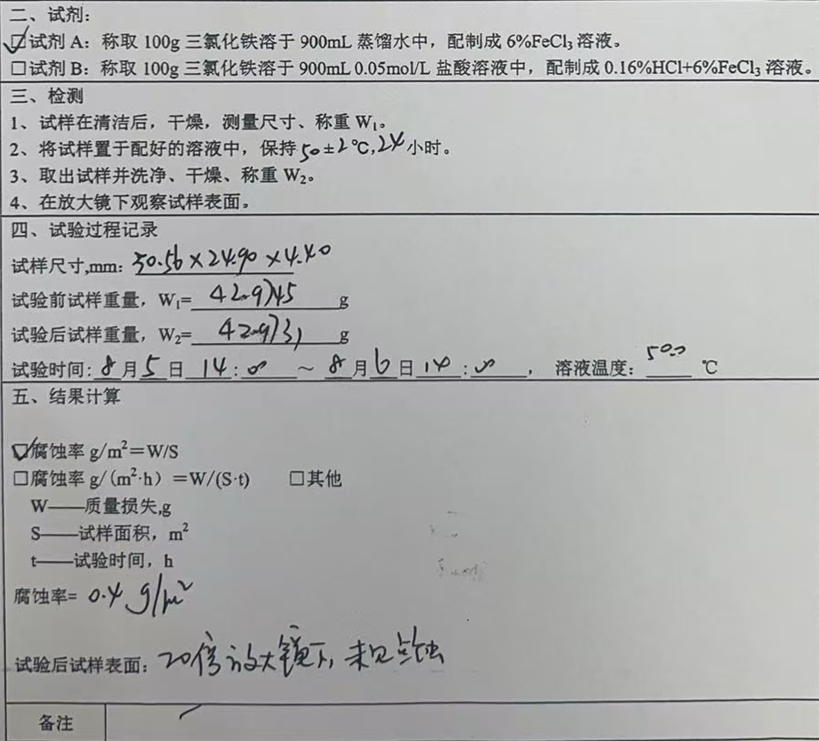 二、试剂：
☑试剂 A：称取 100g 三氯化铁溶于 900mL 蒸馏水中，配制成 6%FeCl₃ 溶液。
□试剂 B：称取 100g 三氯化铁溶于 900mL 0.05mol/L 盐酸溶液中，配制成 0.16%HCl+6%FeCl₃ 溶液。
三、检测
1、试样在清洁后，干燥，测量尺寸、称重 W₁。
2、将试样置于配好的溶液中，保持 50±2℃,24 小时。
3、取出试样并洗净、干燥、称重 W₂。
4、在放大镜下观察试样表面。
四、试验过程记录
试样尺寸,mm：50.56×24.90×4.40
试验前试样重量，W₁= 42.9745 g
试验后试样重量，W₂= 42.9731 g
试验时间: 8 月 5 日 14 : 00 ～ 8 月 6 日 14 : 00 ， 溶液温度： 50.0 ℃
五、结果计算
☑腐蚀率 g/m²＝W/S
□腐蚀率 g/（m²·h）＝W/(S·t) □其他
W——质量损失,g
S——试样面积，m²
t——试验时间，h
腐蚀率= 0.4 g/m²
试验后试样表面：20倍放大镜下，未见点蚀
备注